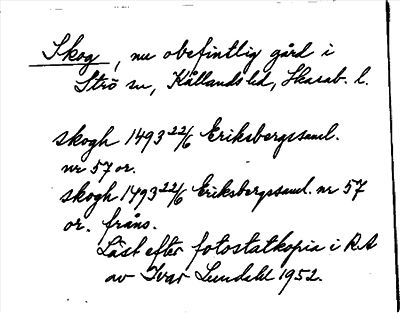 Skog, nu obefintlig gård i
Strö sn, Kållands hd, Skarab. l.
skogh 1493 22/6 Eriksbergssaml.
nr 57 or.
skogh 1493 22/6 Eriksbergssaml. nr 57
or. fråns.
Läst efter fotostatkopia i RA
av Ivar Lundahl 1952.